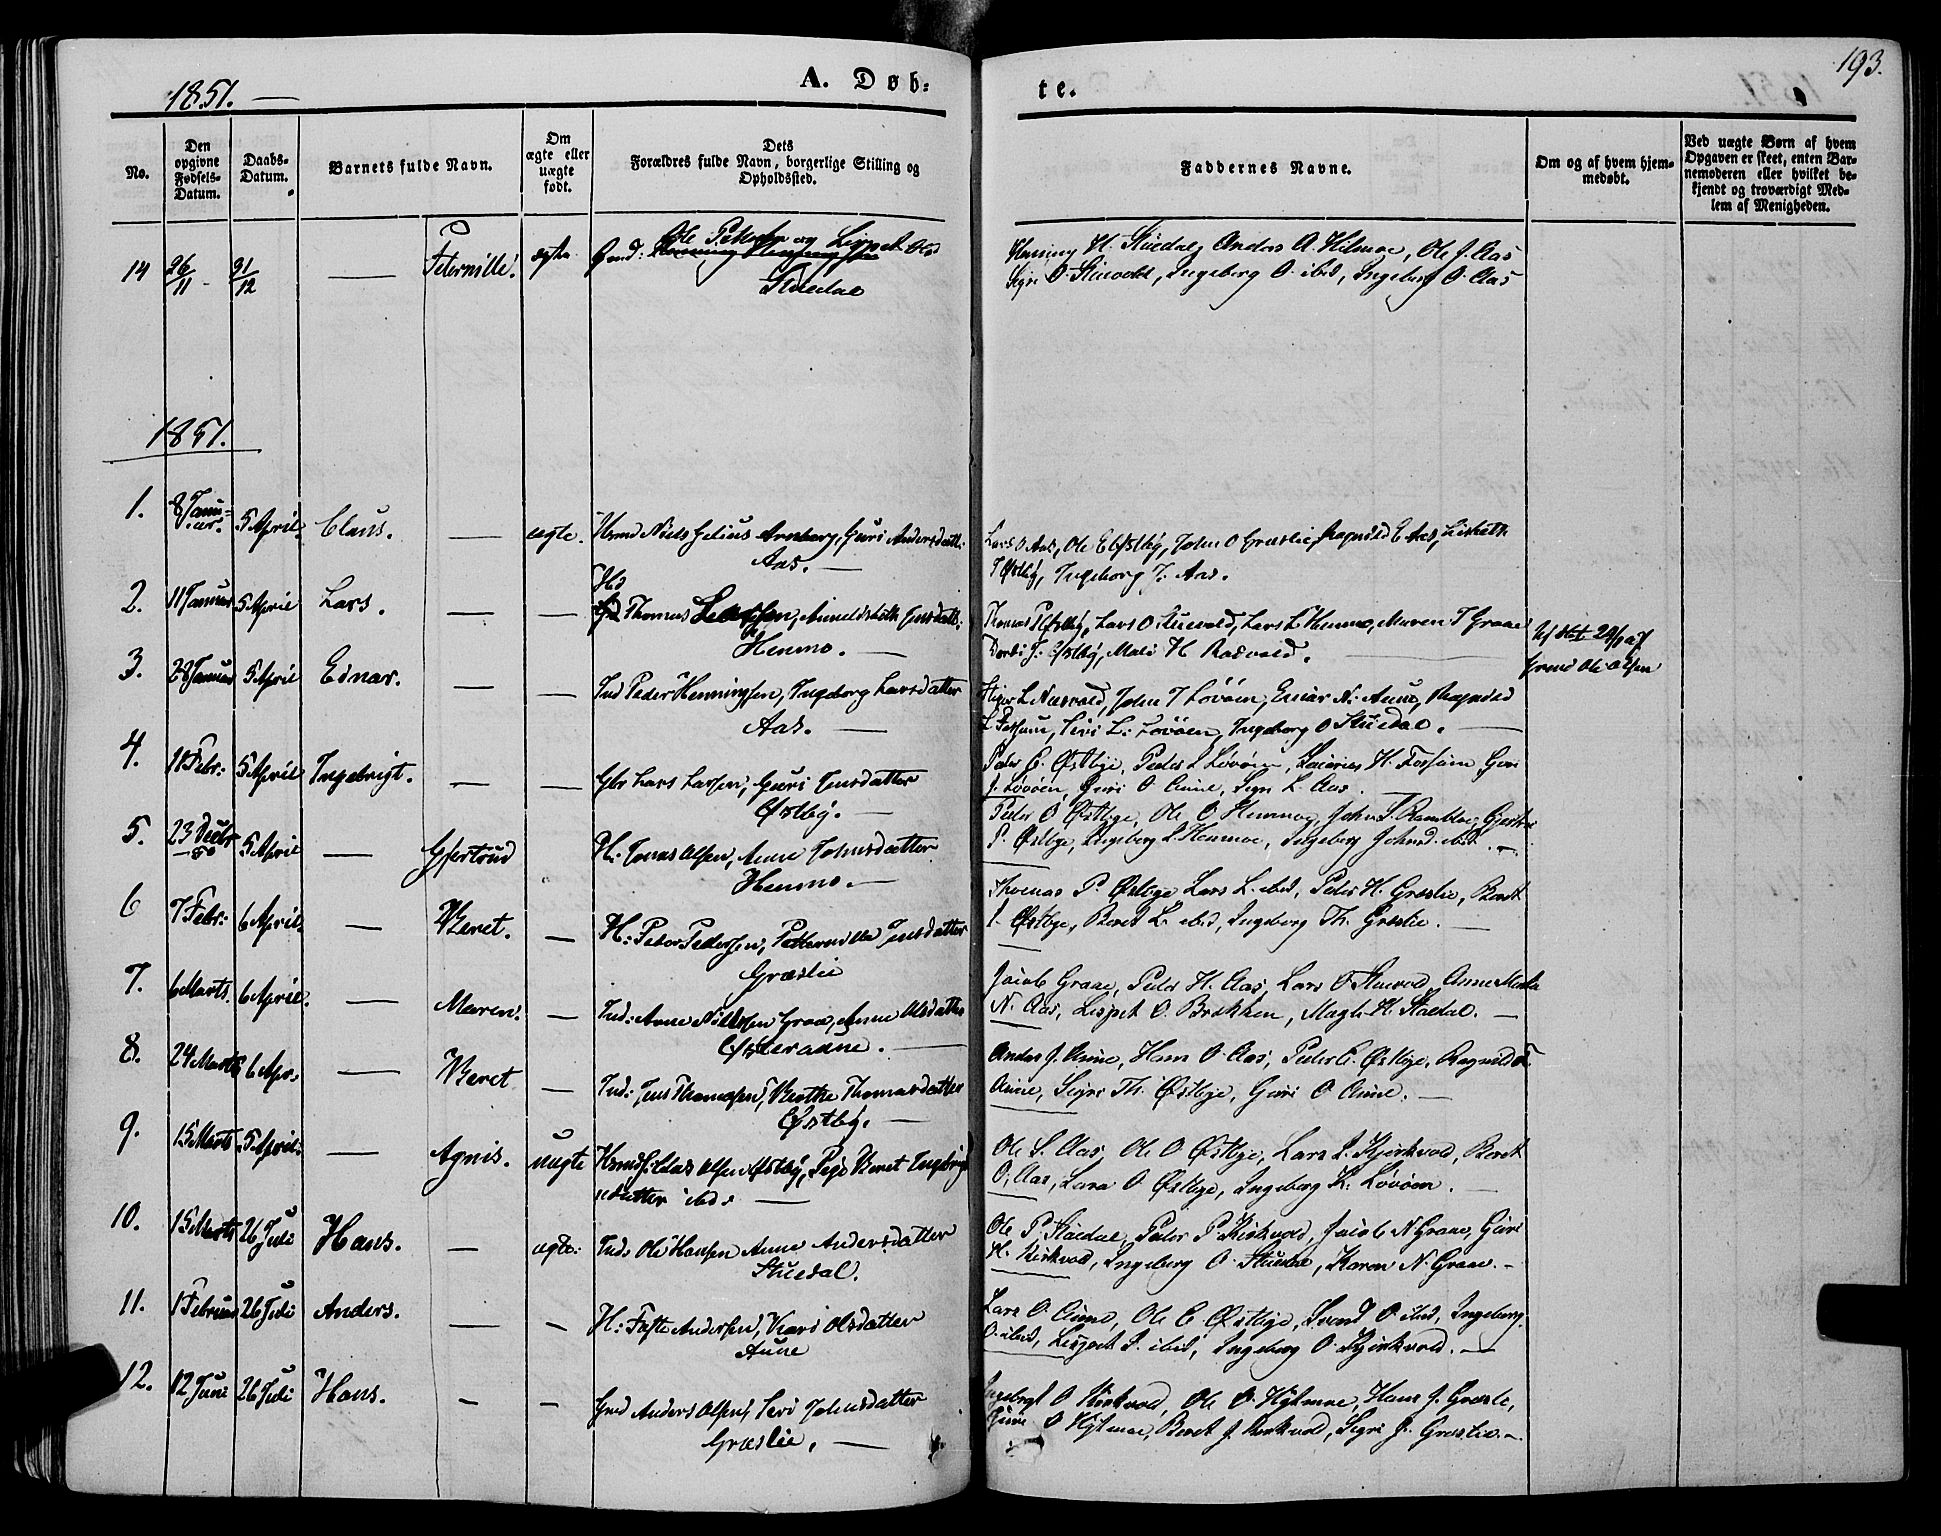 193.
1851.
A. Døb:
te.
No.
Den opgivne Fødsels-Datum.
Daabs-Datum.
Barnets fulde Navn.
Om ægte eller uægte født.
Dets
Forældres fulde Navn, borgerlige Stilling og
Opholdssted.
Faddernes Navne.
Om og af hvem hjem-
medøbt.
Ved uægte Børn af hvem
Opgaven er skeet, enten Bar-
nemoderen eller hvilket be-
kjendt og troværdigt Med-
lem af Menigheden.
14 26/11 31/12 — Peternille. ægte Ole Petersen og Lispet
Stuedal
Henning H. Stuedal, Anders A. Hilmoe, Ole J. Aas
Sigri O. Stuevold, Ingeborg O. ibid, Ingeborg O. Aas
1851.
1. 8 Januar. 5 April. Claus. — ægte. Niels Anderdatt:
Aas. —
Lars O Aas, Ole E Østby, John O Græslie, Ragnild E Aas, Lisbeth
T Østby, Ingeborg J. Aas.
2. 11 Januar 5 April Lars. — — Hd Thomas
Henmo. —
Thomas P Østby, Lars O Stuevold, Lars L Henmo, Maren T Graae
Østby, Mali H Rasvold. —
Ole Olsen
3. 28 Januar 5 April Einar. — — Ind Peder Henningsen, Ingeborg Larsdatter
Aas. —
L Næsvold, John T Løvøen, Einar N. Aune, Ragnild
L Fossum, Siri L: Løvøen, Ingeborg O Stuedal. —
4. 18 Febr: 5 April Ingebrigt. — — Gbr Lars Larsen, Guri Jensdatter
Østby. —
Peder E. Østbye, Peder L Løvøen, H. Fossum, Guri
J. Løvøen, Guri O Aune, Sigri L. Aas. —
5. 23 Decbr 50 5 April — Gjertrud H: Jonas Olsen, Anne Johnsdatter
Henmo. —
Peder O Østbye, Ole O Henmoe, John S. Ramlo,
P. Østbye, Ingeborg L Henmoe, Ingeborg Johnsd. ibid. —
6 7 Febr: 6 April. — Beret. — H: Peder Pedersen, Peternille Jensdatter
Græslie
Thomas P Østbye Lars L. ibid, Peder H. Græslie, Beret
J. Østbye, Beret L. ibid, Ingeborg Th. Græslie. —
7. 6 Marts. 6 April. — Maren. — Ind: Arne Nielsen Graae, Anne Olsdatter
Østeraune. —
Jacob Graae, Peder H. Aas, Lars O Stuevold, Anne Marta
N. Aas, Lispet O. Brækken, H. Stuedal. —
8. 24 Marts 6 Apr. — Beret — Ind: Jens Thomasen, Berthe Thomasdatter
Østby. —
Anders J. Aune, Hans O Aas, Peder E. Østbye, Ragnild
Aune, Sigri Th. Østbye, Guri O Aune. —
9. 15 Marts 5 April. — Agnis. uægte Olsen Østby, Pige Beret Ingebrigt
sdatter ibd. —
Ole S. Aas, Ole O Østbye, Lars L. Kjirkvold, Beret
O. Aas, Lara O Østbye, Ingeborg K. Løvøen. —
10. 15 Marts 26 Juli Hans. — ægte: Ind: Ole Hansen Anne Andersdatter
Stuedal.
Ole P. Stuedal, Peder P. Kirkvold, Jacob N Graae, Guri
H. Kirkvold, Ingeborg O. Stuedal, Karen N. Graae. —
11. 1 Februar 26 Juli Anders. — — H: Faste Andersen, Kari Olsdatter
Aune
Lars O. Aune, Ole E Østbye, Svend O ibid, Ingeborg
O. ibid, Lispet P. ibid, Ingeborg O. Kjirkvold. —
12. 12 Juni 26 Juli Hans. — — Gmd Anders Olsen, Siri Johnsdatter
Græslie. —
Ingebrigt O Kirkvold, Ole O. Hiltmoe, Hans J. Græslie,
Guri O Hiltmoe, Beret J. Kirkvold, Sigri J. Græslie. —